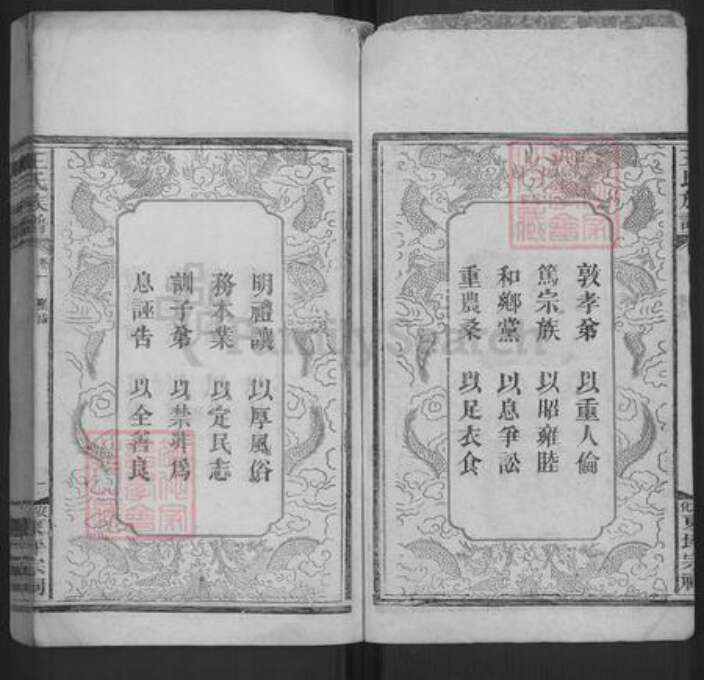 敦孝弟 以重人倫
篤宗族 以昭雍睦
和鄉黨 以息爭訟
重農桑 以足衣食
明禮讓 以厚風俗
務本業 以定民志
訓子弟 以禁非為
息誣告 以全善良
王氏族譜
FamilySearch